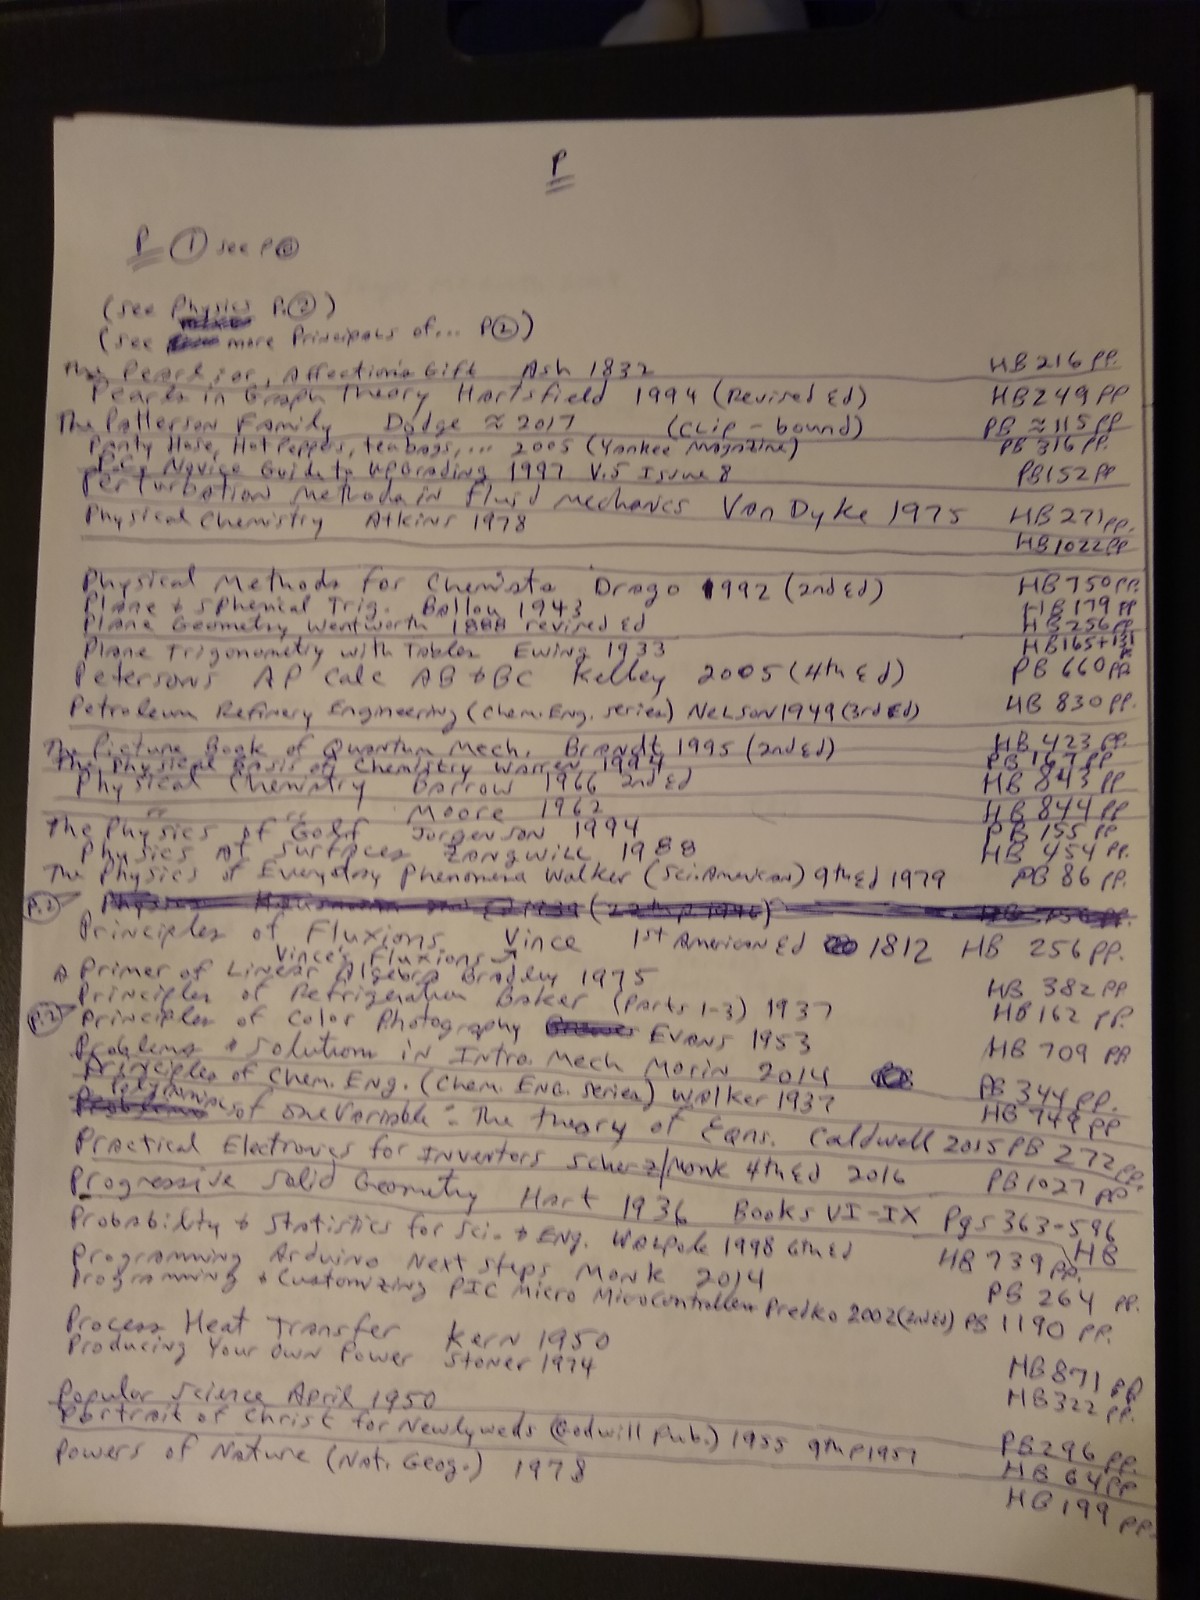 P
P ① see P②
(see Physics P.②)
(see more Principals of... P②)
The Pearl; or, Affection's Gift Ash 1832 HB 216 pp.
Pearls in Graph Theory Hartsfield 1994 (Revised Ed) HB 249 pp
The Patterson Family Dodge ≈ 2017 (clip-bound) PB ≈ 115 pp
Panty Hose, Hot Peppers, teabags,... 2005 (Yankee Magazine) PB 316 pp.
PC Novice Guide to Upgrading 1997 V.5 Issue 8 PB 152 pp
Perturbation Methods in Fluid Mechanics Van Dyke 1975 HB 271 pp.
Physical Chemistry Atkins 1978 HB 1022 pp
Physical Methods for Chemists Drago 1992 (2nd Ed) HB 750 pp.
Plane & Spherical Trig. Ballou 1943 HB 179 pp
Plane Geometry Wentworth 1888 revised Ed HB 256 pp
Plane Trigonometry with Tables Ewing 1933 HB 165+131
Petersons AP Calc AB & BC Kelley 2005 (4th Ed) PB 660 pp
Petroleum Refinery Engineering (Chem. Eng. series) Nelson 1949 (3rd Ed) HB 830 pp.
The Picture Book of Quantum Mech. Brandt 1995 (2nd Ed) HB 423 pp.
The Physical Basis of Chemistry Warren 1994 PB 167 pp
Physical Chemistry Barrow 1966 2nd Ed HB 843 pp
" " Moore 1962 HB 844 pp
The Physics of Golf Jorgenson 1994 PB 155 pp
Physics at Surfaces Zangwill 1988 HB 454 pp.
The Physics of Everyday Phenomena Walker (Sci. American) 9th Ed 1979 PB 86 pp.
P.2 Physics 1939 (22th p 1946)
Principles of Fluxions Vince 1st American Ed 1812 HB 256 pp.
Vince's Fluxions
A Primer of Linear Algebra Bradley 1975 HB 382 pp
Principles of Refrigeration Baker (Parts 1-3) 1937 HB 162 pp.
P.2 Principles of Color Photography Evans 1953 HB 709 pp
Problems & Solutions in Intro. Mech Morin 2014 PB 344 pp.
Principles of Chem. Eng. (Chem. Eng. series) Walker 1937 HB 749 pp
Polynomials of one Variable - The theory of Eqns. Caldwell 2015 PB 272 pp.
Practical Electronics for Inventors Scherz/Monk 4th Ed 2016 PB 1027 pp
Progressive Solid Geometry Hart 1936 Books VI-IX Pgs 363-596 HB
Probability & Statistics for Sci. & Eng. Walpole 1998 6th Ed HB 739 pp.
Programming Arduino Next Steps Monk 2014 PB 264 pp.
Programming & Customizing PIC Micro Microcontrollers Predko 2002 (2nd Ed) PB 1190 pp.
Process Heat Transfer Kern 1950 HB 871 pp
Producing Your Own Power Stoner 1974 HB 322 pp.
Popular Science April 1950 PB 296 pp.
Portrait of Christ for Newlyweds (Godwill Pub.) 1955 9th P 1957 HB 64 pp
Powers of Nature (Nat. Geog.) 1978 HB 199 pp.